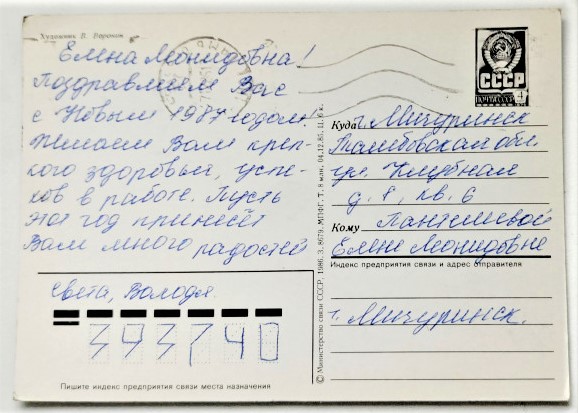 Художник В. Воронин
Елена Леонидовна!
Поздравляем Вас
с Новым 1987 годом.
Желаем Вам креп-
кого здоровья, успе-
хов в работе. Пусть
этот год принесёт
Вам много радостей
Света, Володя.
393740
Пишите индекс предприятия связи места назначения
СССР
ПОЧТА СССР 4
Куда г. Мичуринск
Тамбовская обл.
ул. Клубная
д. 8, кв. 6
Кому Пантелеевой
Елене Леонидовне
Индекс предприятия связи и адрес отправителя
г. Мичуринск.
© Министерство связи СССР, 1986. З. 8679. МПФГ. Т. 8 млн. 04.12.85. Ц. 6 к.